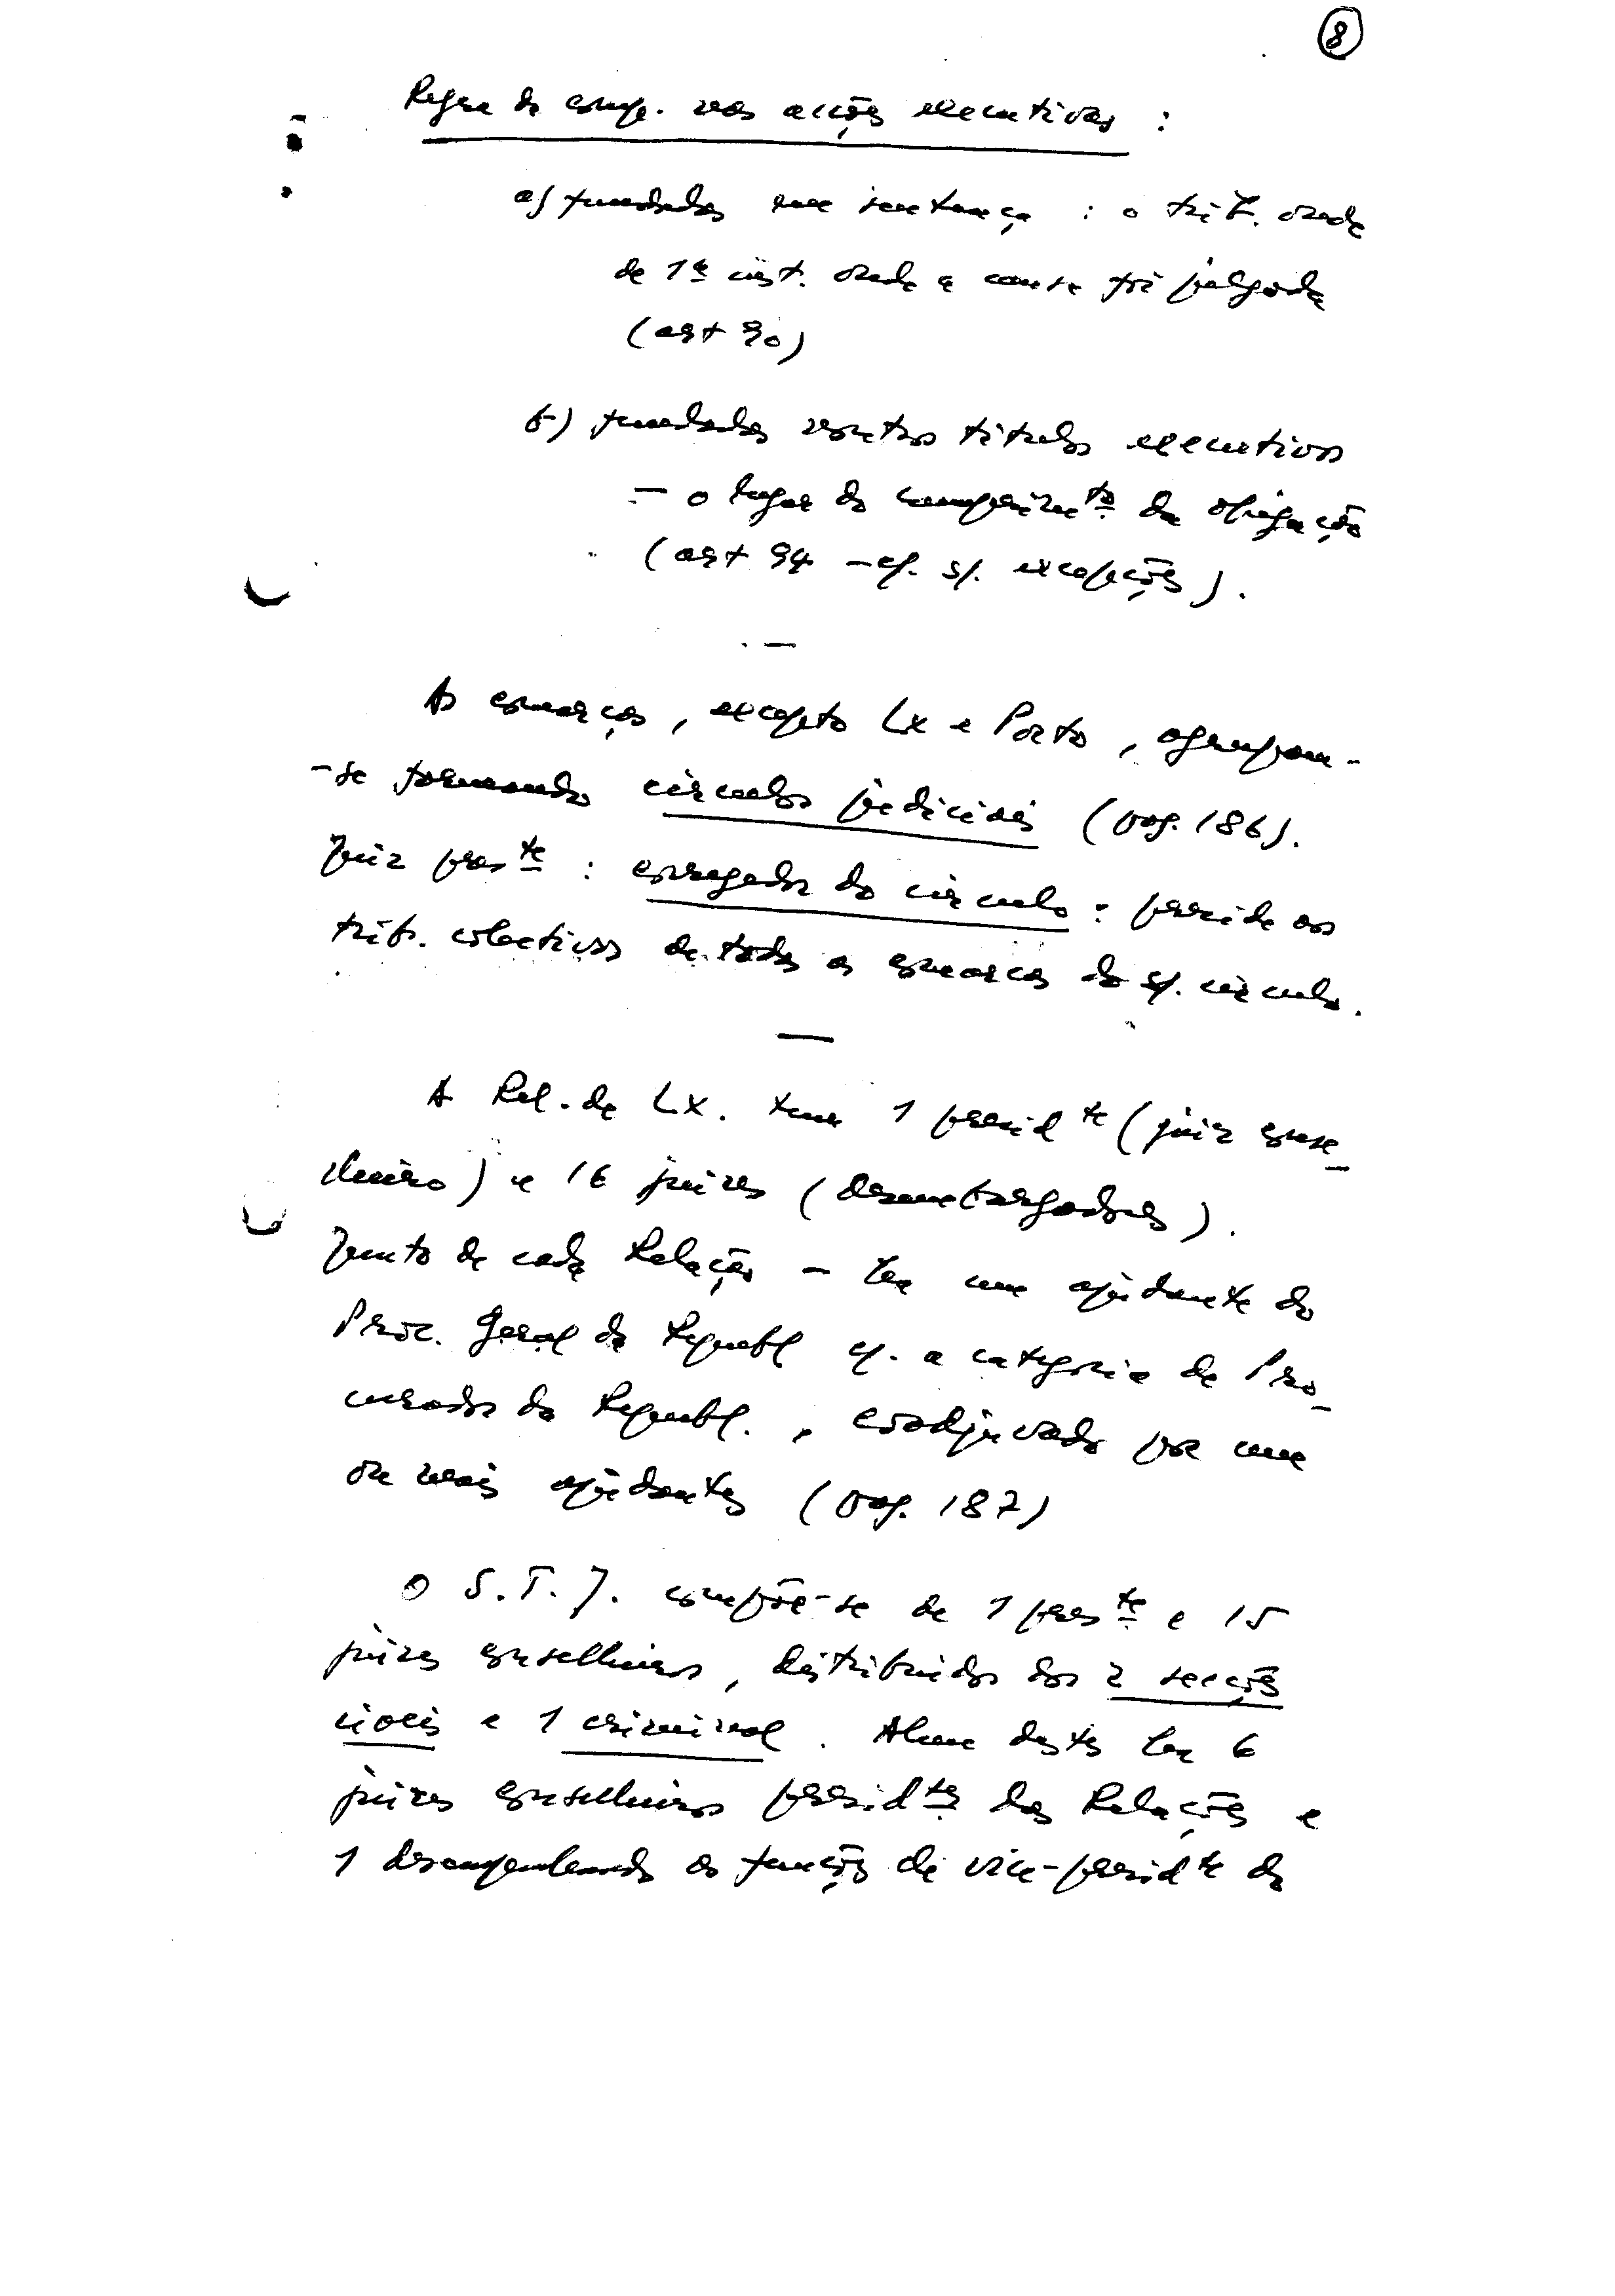 8
Regra de comp. nas acções executivas :
a) fundadas em sentença : o trib. onde
de 1ª inst. onde a causa foi julgada
(art 90)
b) fundadas noutros títulos executivos
- o lugar do cumprimto da obrigação
(art 94 - c/. s/. excepções).
As comarcas, excepto Lx e Porto, agrupam-
-se formando círculos judiciais (pag. 186).
Juiz preste : corregedor do círculo : preside aos
trib. colectivos de todas as comarcas do s/. círculo.
A Rel. de Lx. tem 1 presidte (juiz conse_
lheiro) e 16 juízes (desembargadores).
Junto de cada Relação - há um ajudante do
Proc. Geral da Republ c/. a categoria de Pro_
curador da Republ., coadjuvado por um
ou mais ajudantes (pag. 187)
O S.T.J. compõe-se de 1 preste e 15
juízes conselheiros, distribuídos por 2 secções
cíveis e 1 criminal. Alem destes há 6
juízes conselheiros presidtes das Relações e
1 desempenhando as funções de vice-presidte do